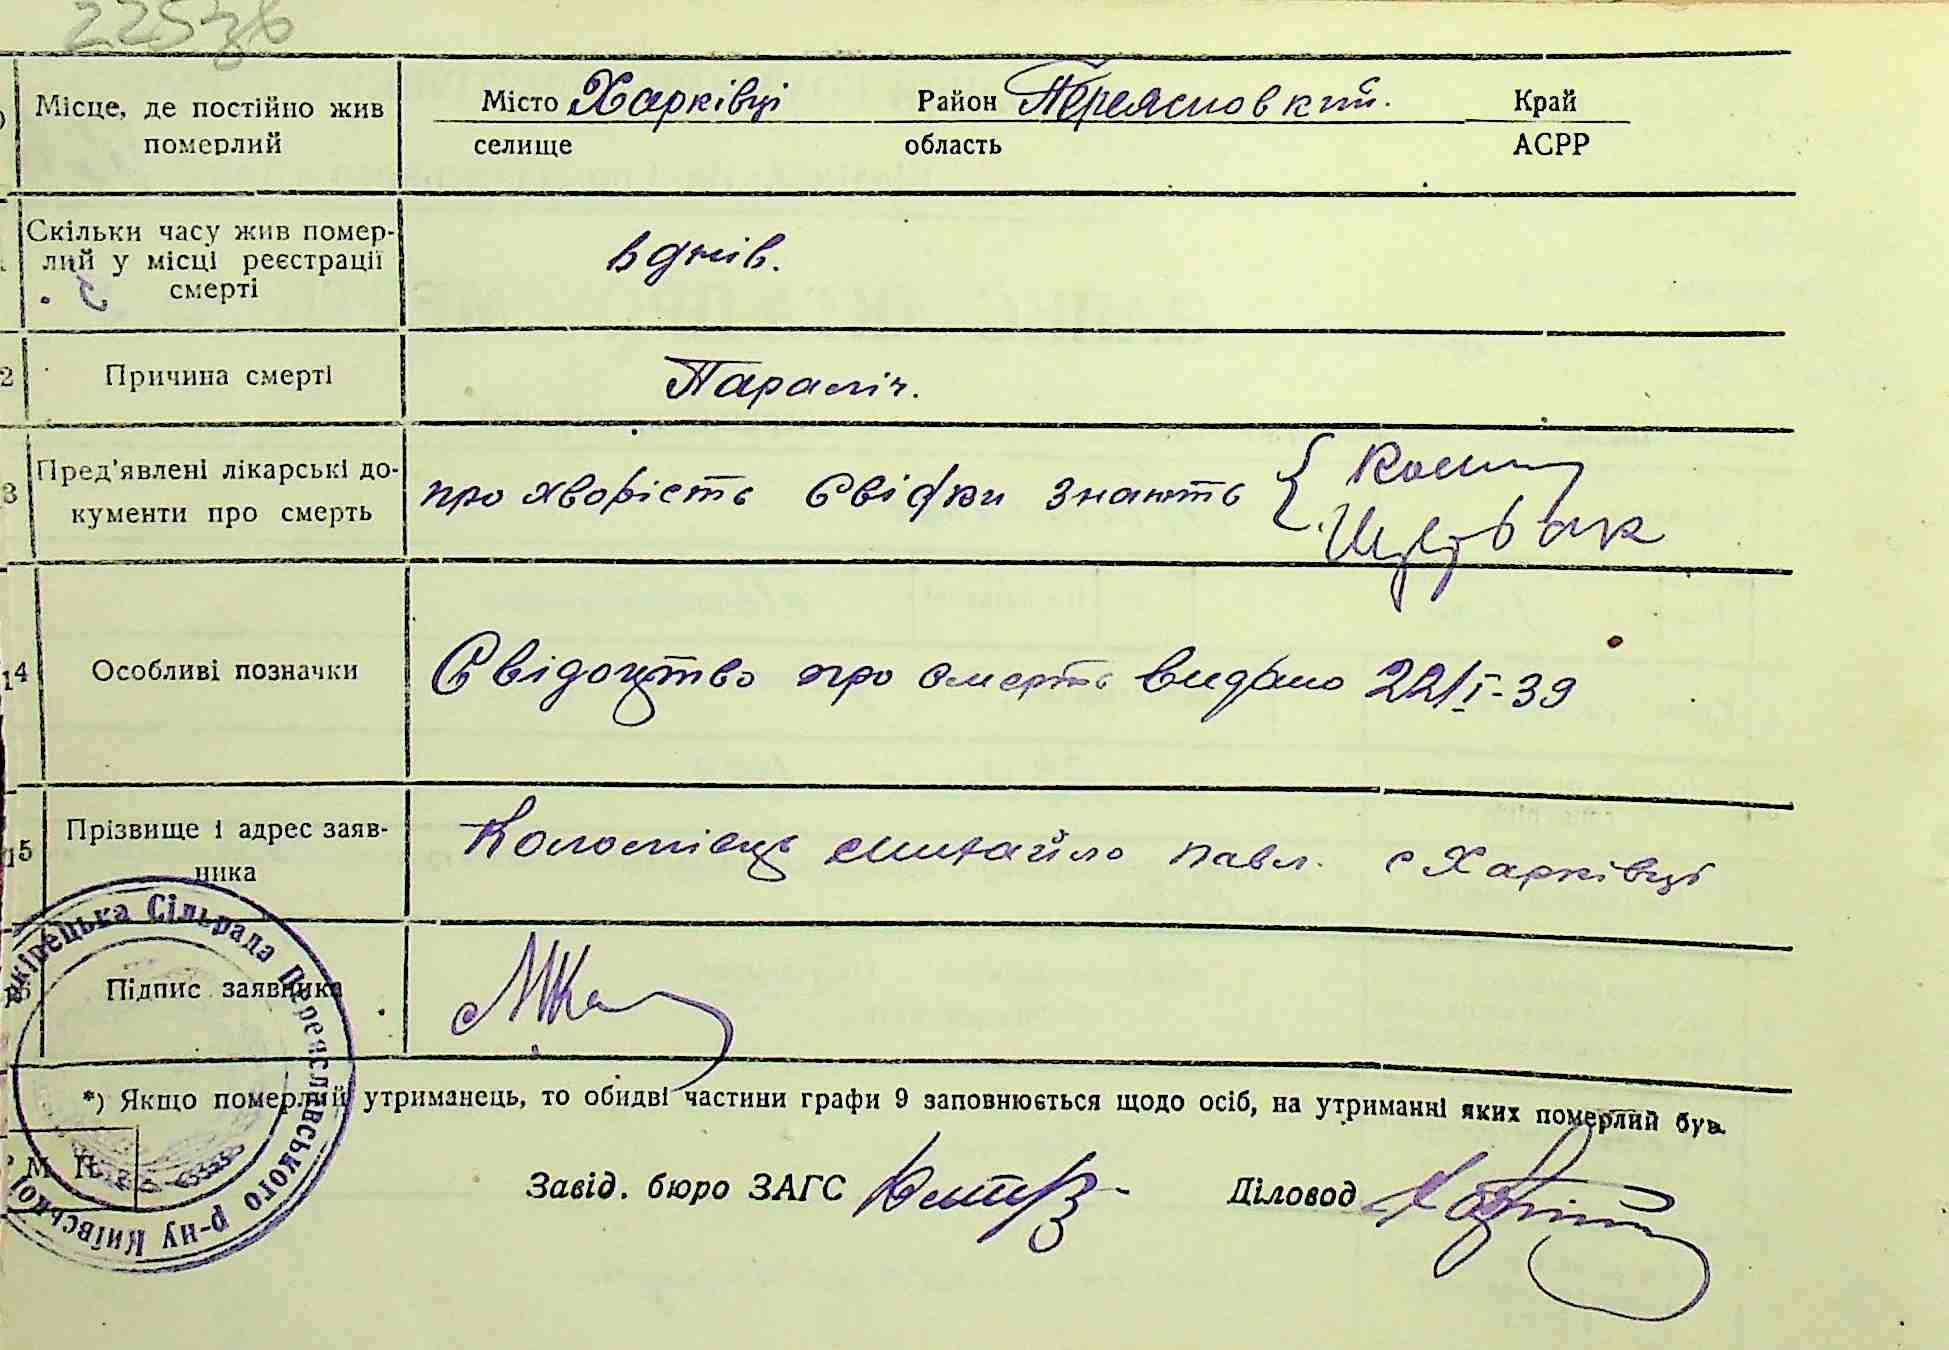 22538
Місце, де постійно жив
померлий
Місто Харківці Район Переясловкий. Край
селище область АСРР
Скільки часу жив помер-
лий у місці реєстрації
смерті
днів.
2 Причина смерті Параліч.
3 Пред'явлені лікарські до-
кументи про смерть
про хворість свідки знають {
14 Особливі позначки Свідоцтво про смерть видано 22/I-39
15 Прізвище і адрес заяв-
ника
Коломієць Михайло Павл. с Харківці
16 Підпис заявника
*) Якщо померлий утриманець, то обидві частини графи 9 заповнюється щодо осіб, на утриманні яких померлий був.
М П.
Завід. бюро ЗАГС Діловод
Сільрада Переяславського р-ну Київської